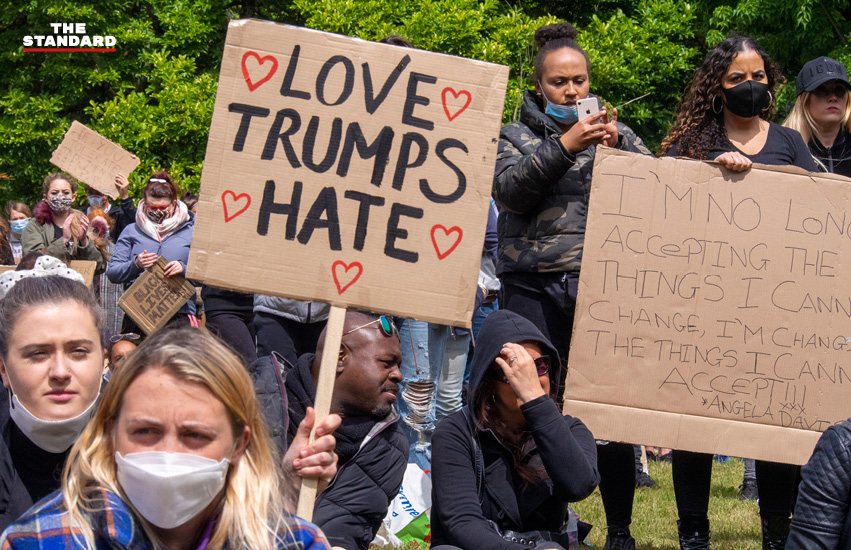 THE
STANDARD
LOVE
TRUMPS
HATE
I'M NO LONG
ACCEPTING THE
THINGS I CANN
CHANGE, I'M CHANGI
THE THINGS I CANN
ACCEPT!!!
*ANGELA DAVI
BLACK
LIVES
MATTER